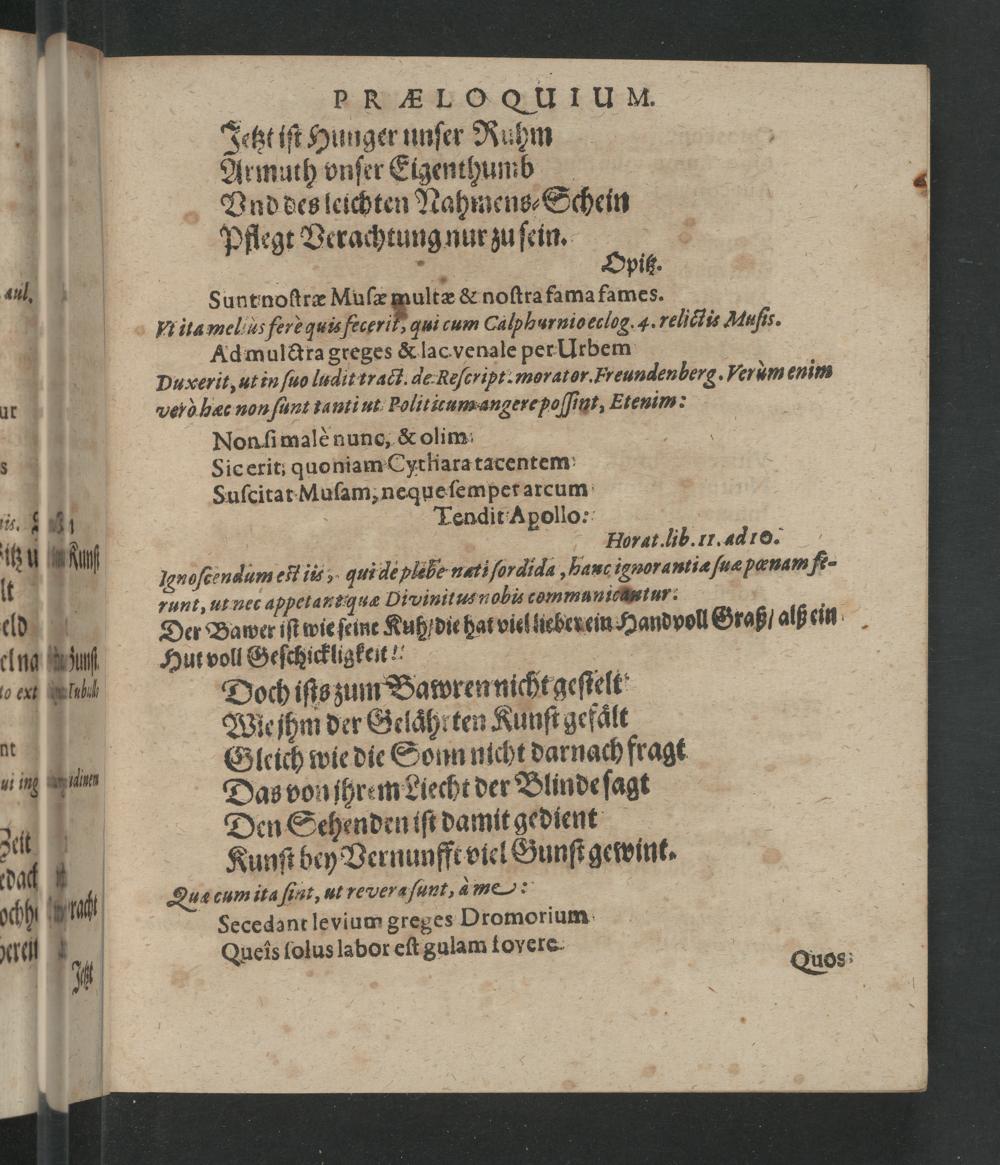 PRÆLOQUIUM.
Jetzt ist Hunger unser Ruhm
Armuth vnser Eigenthumb
Vnd des leichten Nahmens-Schein
Pflegt Verachtung nur zu sein.
Opitz.
Sunt nostræ Musæ multæ & nostra fama fames.
Vt ita meliùs ferè quis fecerit, qui cum Calphurnio eclog. 4. relictis Musis.
Ad mulctra greges & lac venale per Urbem
Duxerit, ut in suo ludit tract. de Rescript. morator. Freundenberg. Verùm enim
verò hæc non sunt tanti ut Politicum angere possint, Etenim:
Non si malè nunc, & olim
Sic erit; quoniam Cythara tacentem
Suscitat Musam, neque semper arcum
Tendit Apollo:
Horat. lib. 11. ad 10.
Ignoscendum est iis, qui de plebe nati sordida, hanc ignorantiæ suæ pœnam fe-
runt, ut nec appetant quæ Divinitus nobis communicantur.
Der Bawer ist wie seine Kuh/ die hat viel lieber ein Handvoll Graß/ alß ein
Hut voll Geschickligkeit!
Doch ists zum Bawren nicht gestelt
Wie jhm der Gelährten Kunst gefält
Gleich wie die Sonn nicht darnach fragt
Das von jhrem Liecht der Blinde sagt
Den Sehenden ist damit gedient
Kunst bey Vernunfft viel Gunst gewint.
Quæ cum ita sint, ut revera sunt, à me:
Secedant levium greges Dromorium
Queîs solus labor est gulam fovere
Quos